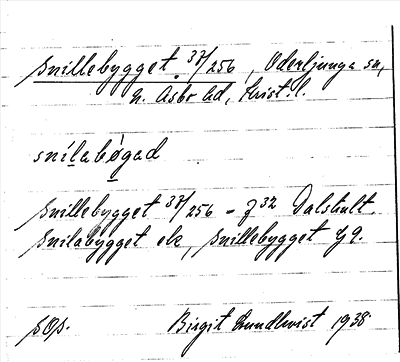 Snillebygget 37/256, Oderljunga sn,
n. Åsbo hd, Krist. l.
snílabò̱gad
Snillebygget 37/256 - f 32 Dalshult.
Snilabygget ek, Snillebygget
Birgit Lundkvist 1938